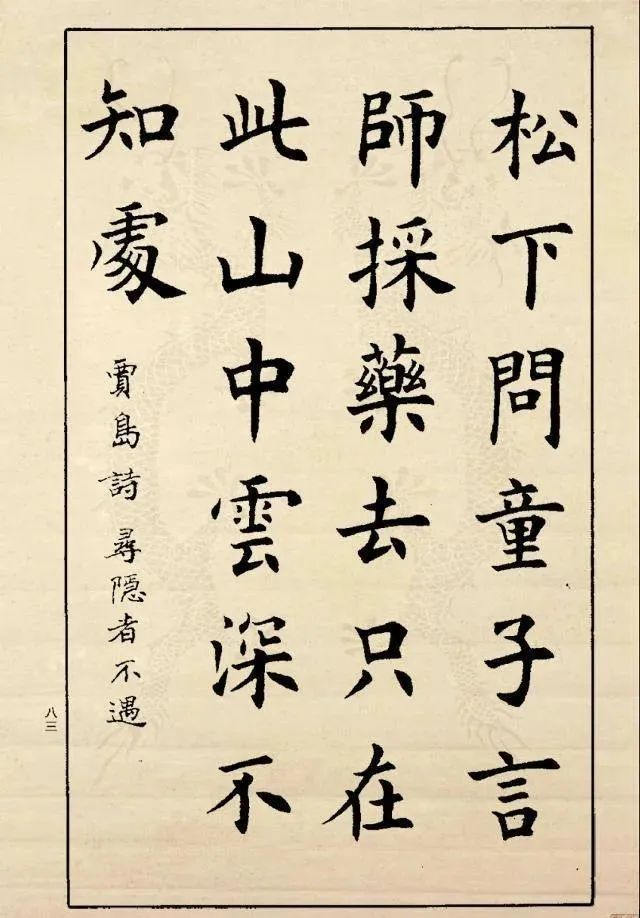 松下問童子言
師採藥去只在
此山中雲深不
知處
賈島詩 尋隱者不遇
八三